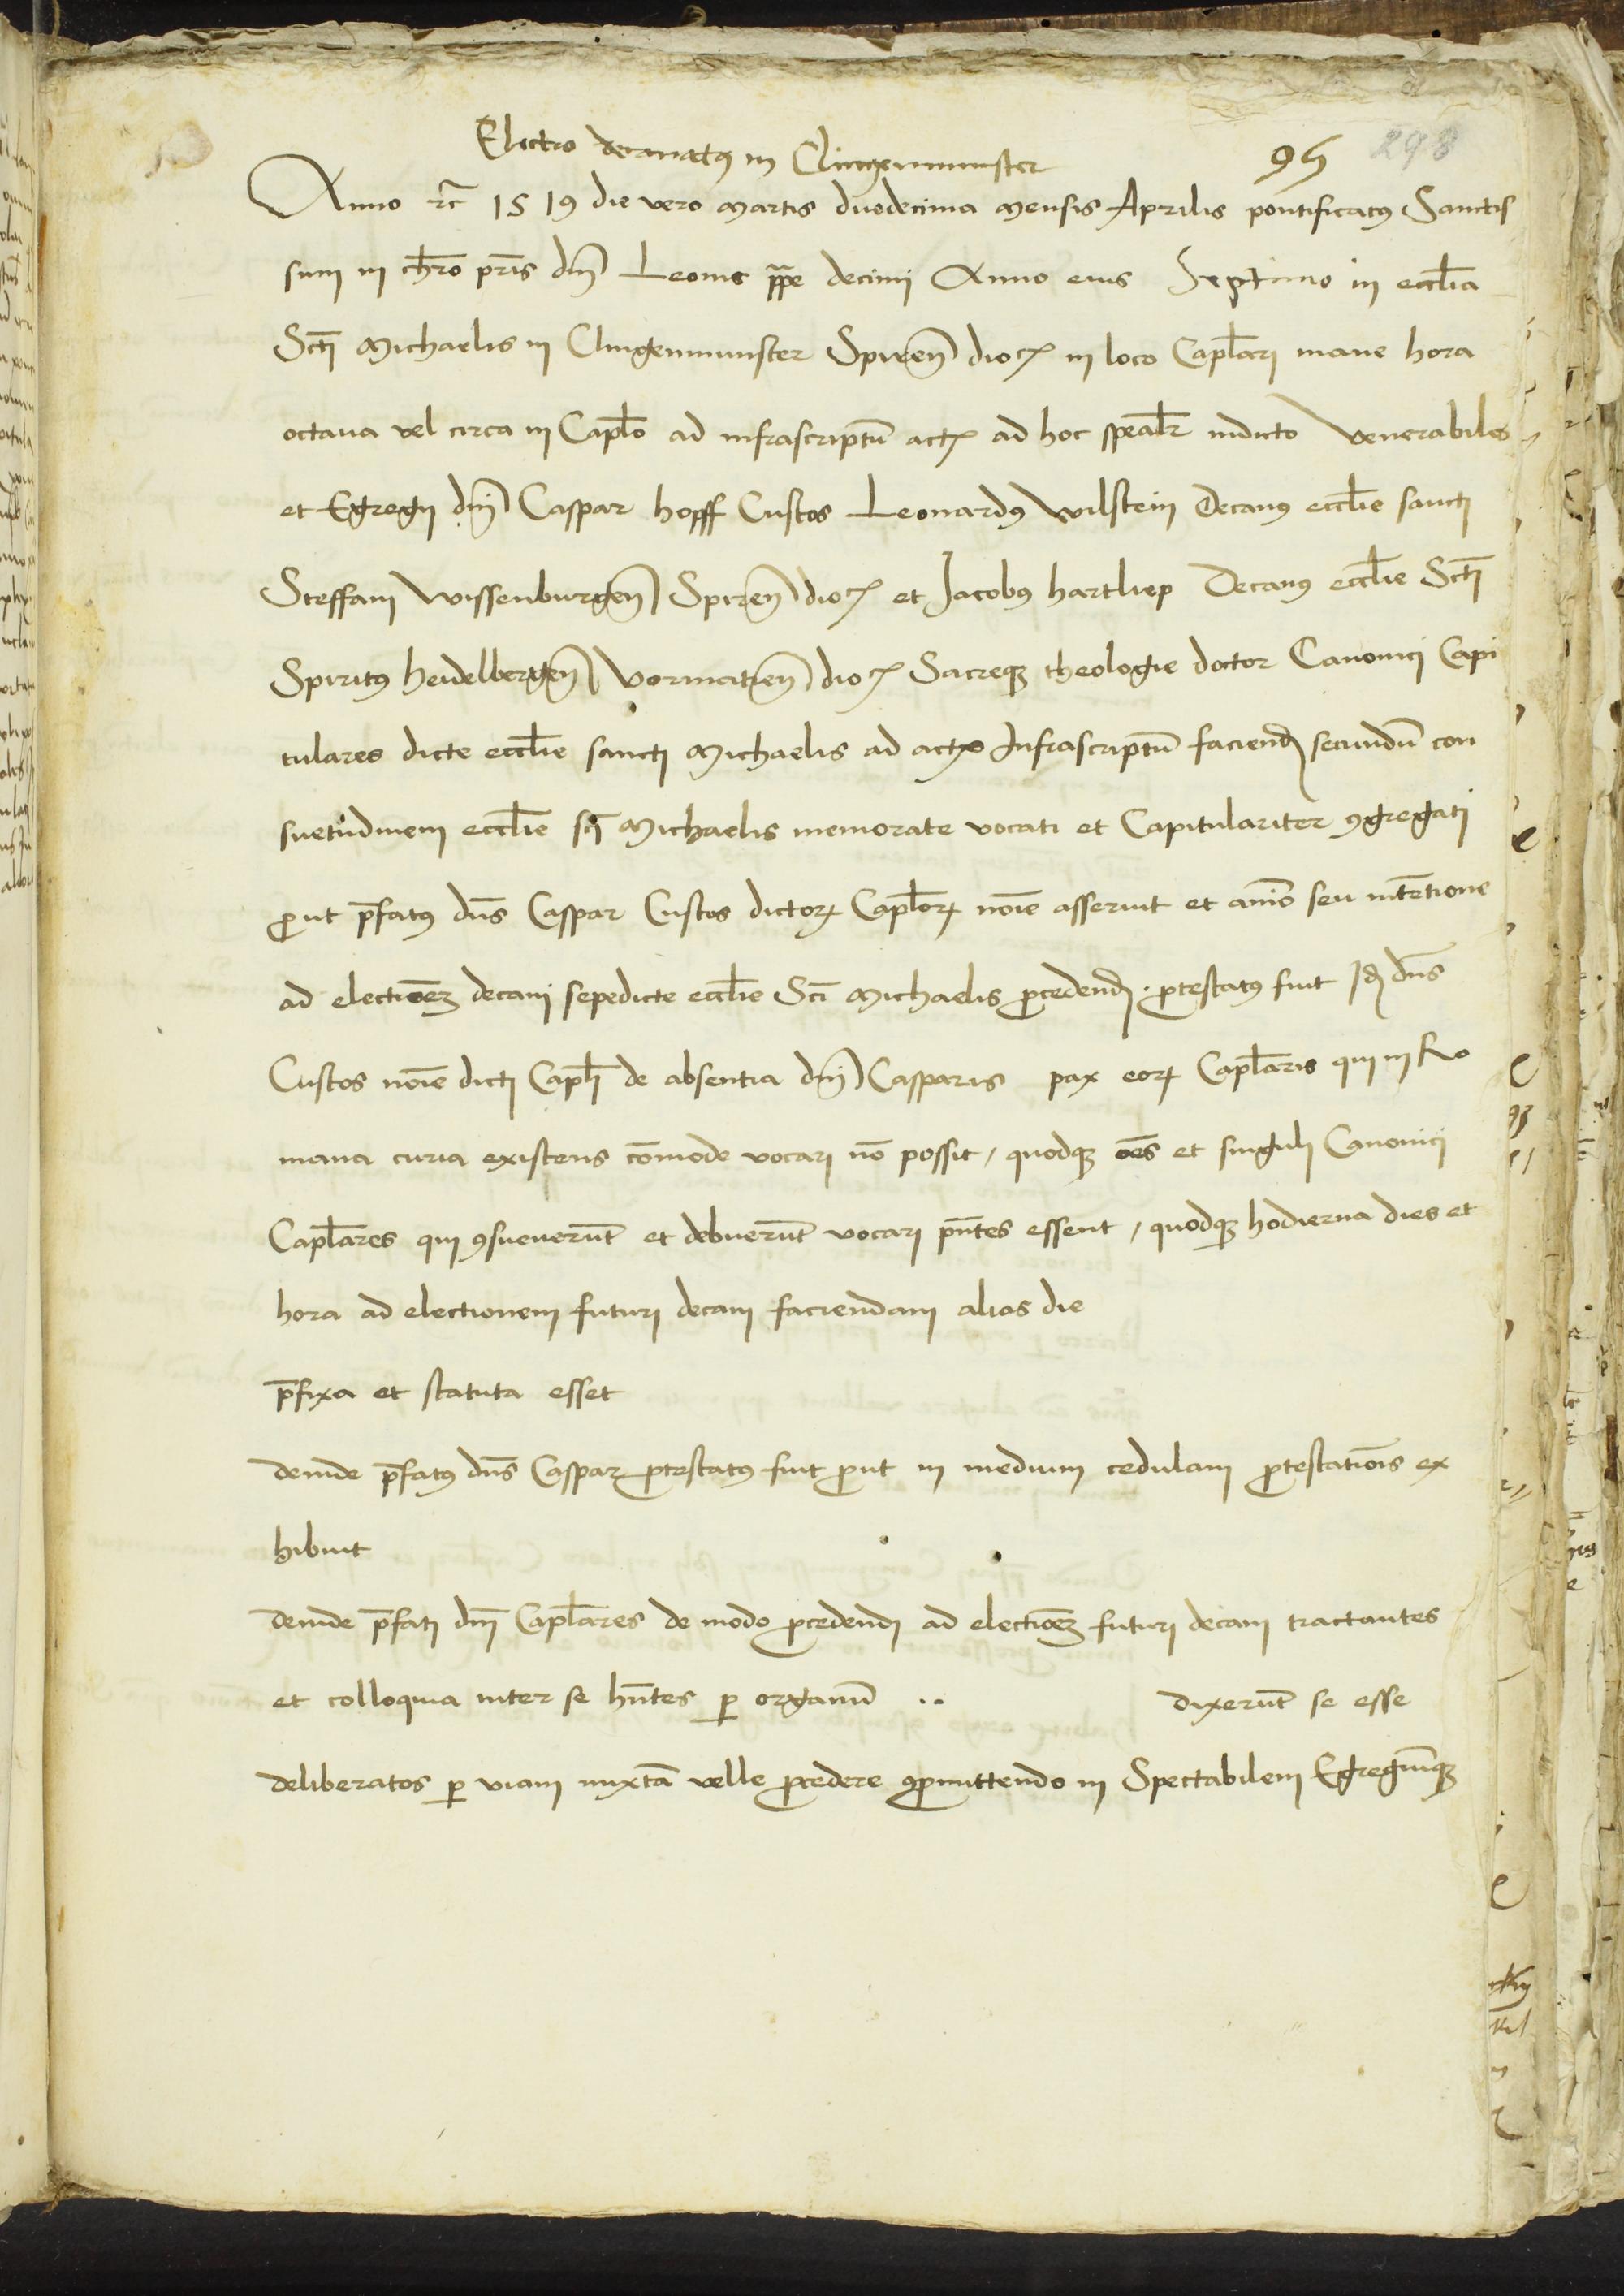 Electio decanatꝯ in Clingenmunster
95 298
Anno ꝛc̄ 1519 die vero Martis duodecima Mensis Aprilis pontificatꝯ Sanctis
simi in chr̄o pr̄is dn̄i Leonis pp̄e decimi Anno eius Septimo in eccl̄ia
Sct̄i Michaelis in Clingenmunster Spiren̄ dioc̄ in loco Capl̄ari mane hora
octaua vel circa in Capl̄o ad infrascriptū actū ad hoc spealr̄ indicto Venerabiles
et Egregij dn̄i Caspar hopff Custos Leonardꝯ Wilstein Decanꝯ eccl̄ie sancti
Steffani Wissenburgen̄ Spiren̄ dioc̄ et Jacobꝯ hartliep Decanꝯ eccl̄ie Sct̄i
Spiritꝯ heidelbergen̄ Vormatien̄ dioc̄ Sacreqꝫ theologie doctor Canonici Capi
tulares dicte eccl̄ie sancti Michaelis ad actū Infrascriptū faciend̄ secundū con
suetudinem eccl̄ie sc̄i Michaelis memorate vocati et Capitulariter ꝯgregati
ꝓut p̄fatꝯ dn̄s Caspar Custos dictoꝝ Capl̄oꝝ noīe asseruit et aīmo seu intētione
ad electioēꝫ decani sepedicte eccl̄ie Sc̄i Michaelis ꝓcedend̄ . ꝓtestatꝯ fuit Id̄ dn̄s
Custos noīe dicti Capl̄i de absentia dn̄i Casparis pax eoꝝ Capl̄aris qui in Ro
mana curia existens cōmode vocari nō possit / quodqꝫ oēs et singuli Canonici
Capl̄ares qui ꝯsueuerūt et debuerūt vocari pn̄tes essent / quodqꝫ hodierna dies et
hora ad electionem futuri decani faciendam alias die
p̄fixa et statuta esset
deinde p̄fatꝯ dn̄s Caspar ꝓtestatꝯ fuit ꝓut in medium cedulam ꝓtestatiōis ex
hibuit
deinde p̄fati dn̄i Capl̄ares de modo ꝓcedendi ad electioēꝫ futuri decani tractantes
et colloquia inter se hn̄tes ꝑ organū .. dixerūt se esse
deliberatos ꝑ viam mixtā velle ꝓcedere ꝯꝓmittendo in Spectabilem Egregiūqꝫ